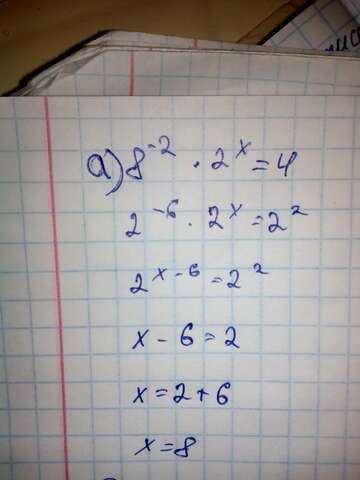 а) 8⁻² · 2ˣ = 4
2⁻⁶ · 2ˣ = 2²
2ˣ⁻⁶ = 2²
x - 6 = 2
x = 2 + 6
x = 8